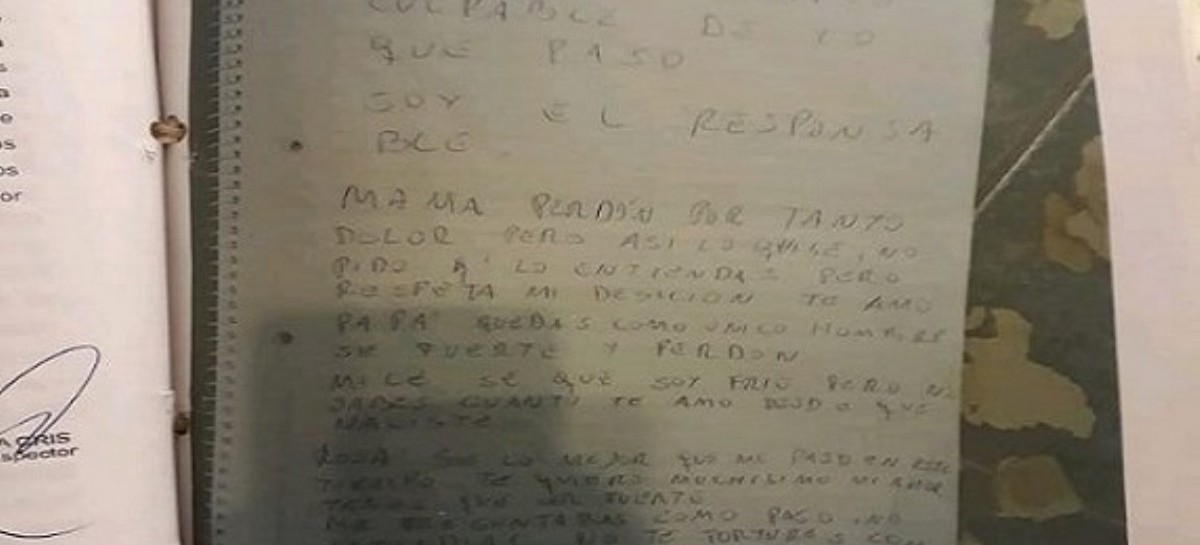 CULPABLE DE LO
QUE PASO
SOY EL RESPONSA
BLE
MAMA PERDÓN POR TANTO
DOLOR PERO ASI LO QUISE, NO
PIDO Q' LO ENTIENDAS PERO
RESPETA MI DESICION TE AMO
PAPÁ QUEDAS COMO UNICO HOMBRE
SE FUERTE Y PERDON
MILE SE QUE SOY FRIO PERO NO
SABES CUANTO TE AMO DESDE QUE
NACISTE
SOS LO MEJOR QUE ME PASO EN ESTE
TIEMPO TE QUIERO MUCHISIMO MI AMOR
TENES QUE SER FUERTE
ME PREGUNTABAS COMO PASO, NO
NO TE TORTURES CON
A CRIS
spector
a
e
os
os
or